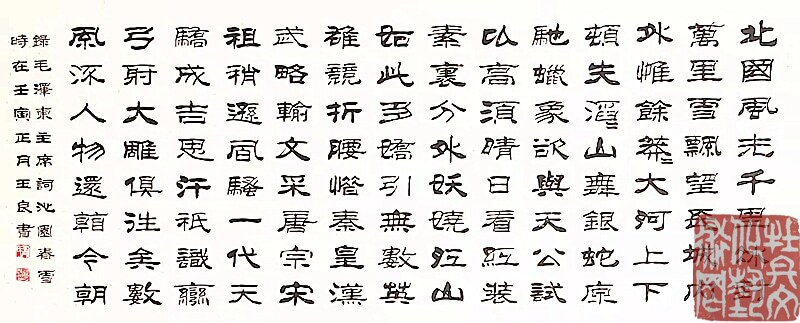 北國風光千里冰封
萬里雪飄望長城內
外惟餘莽〻大河上下
頓失滔〻山舞銀蛇原
馳蠟象欲與天公試
比高須晴日看紅裝
素裹分外妖嬈江山
如此多嬌引無數英
雄競折腰惜秦皇漢
武略輸文采唐宗宋
祖稍遜風騷一代天
驕成吉思汗祇識彎
弓射大雕俱往矣數
風流人物還看今朝
錄毛澤東主席詞沁園春雪
時在壬寅正月王良書